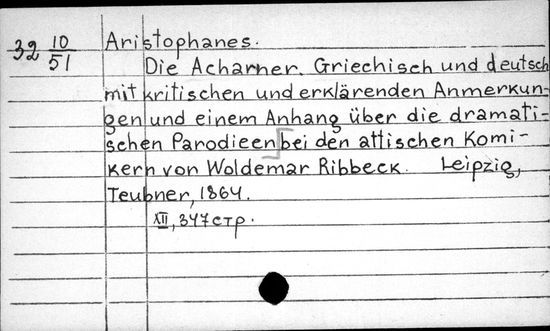 32 10/51 Aristophanes.
Die Acharner. Griechisch und deutsch
mit kritischen und erklärenden Anmerkun-
gen und einem Anhang über die dramati-
schen Parodieen bei den attischen Komi-
kern von Woldemar Ribbeck. Leipzig,
Teubner, 1864.
XII, 347 стр.